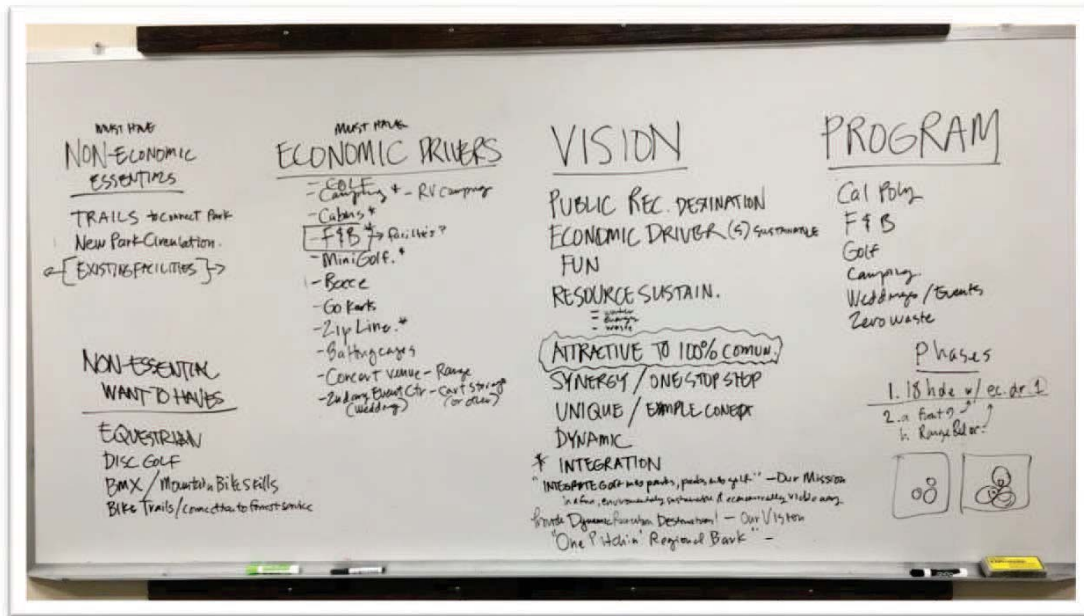 MUST HAVE
NON-ECONOMIC
ESSENTIALS
TRAILS to connect Park
New Park Circulation.
[EXISTING FACILITIES]
NON-ESSENTIAL
WANT TO HAVES
EQUESTRIAN
DISC GOLF
BMX / Mountain Bike Skills
Bike Trails / connection to forest service
MUST HAVE
ECONOMIC DRIVERS
- GOLF
- Camping * - RV Camping
- Cabins *
- F & B * → Facilities?
- Mini Golf. *
- Bocce
- Go Karts
- Zip Line. *
- Batting cages
- Concert venue - Range
- Event Ctr - Cart Storage
(wedding) (or other)
VISION
PUBLIC REC. DESTINATION
ECONOMIC DRIVER(S) SUSTAINABLE
FUN
RESOURCE SUSTAIN.
- water
- Energy
- waste
ATTRACTIVE TO 100% COMUN.
SYNERGY / ONE STOP SHOP
UNIQUE / EXAMPLE
DYNAMIC
* INTEGRATION
"INTEGRATE Golf into parks, parks into golf" - Our Mission
in a fun, environmentally sustainable & economically viable way
Dynamic Destination! - Our Vision
"One Pitchin' Regional Park" -
PROGRAM
Cal Poly
F & B
Golf
Camping.
Weddings / Events
Zero waste
Phases
1. 18 hole w/ ec. dr. 1
2. a Front 9
b. Range